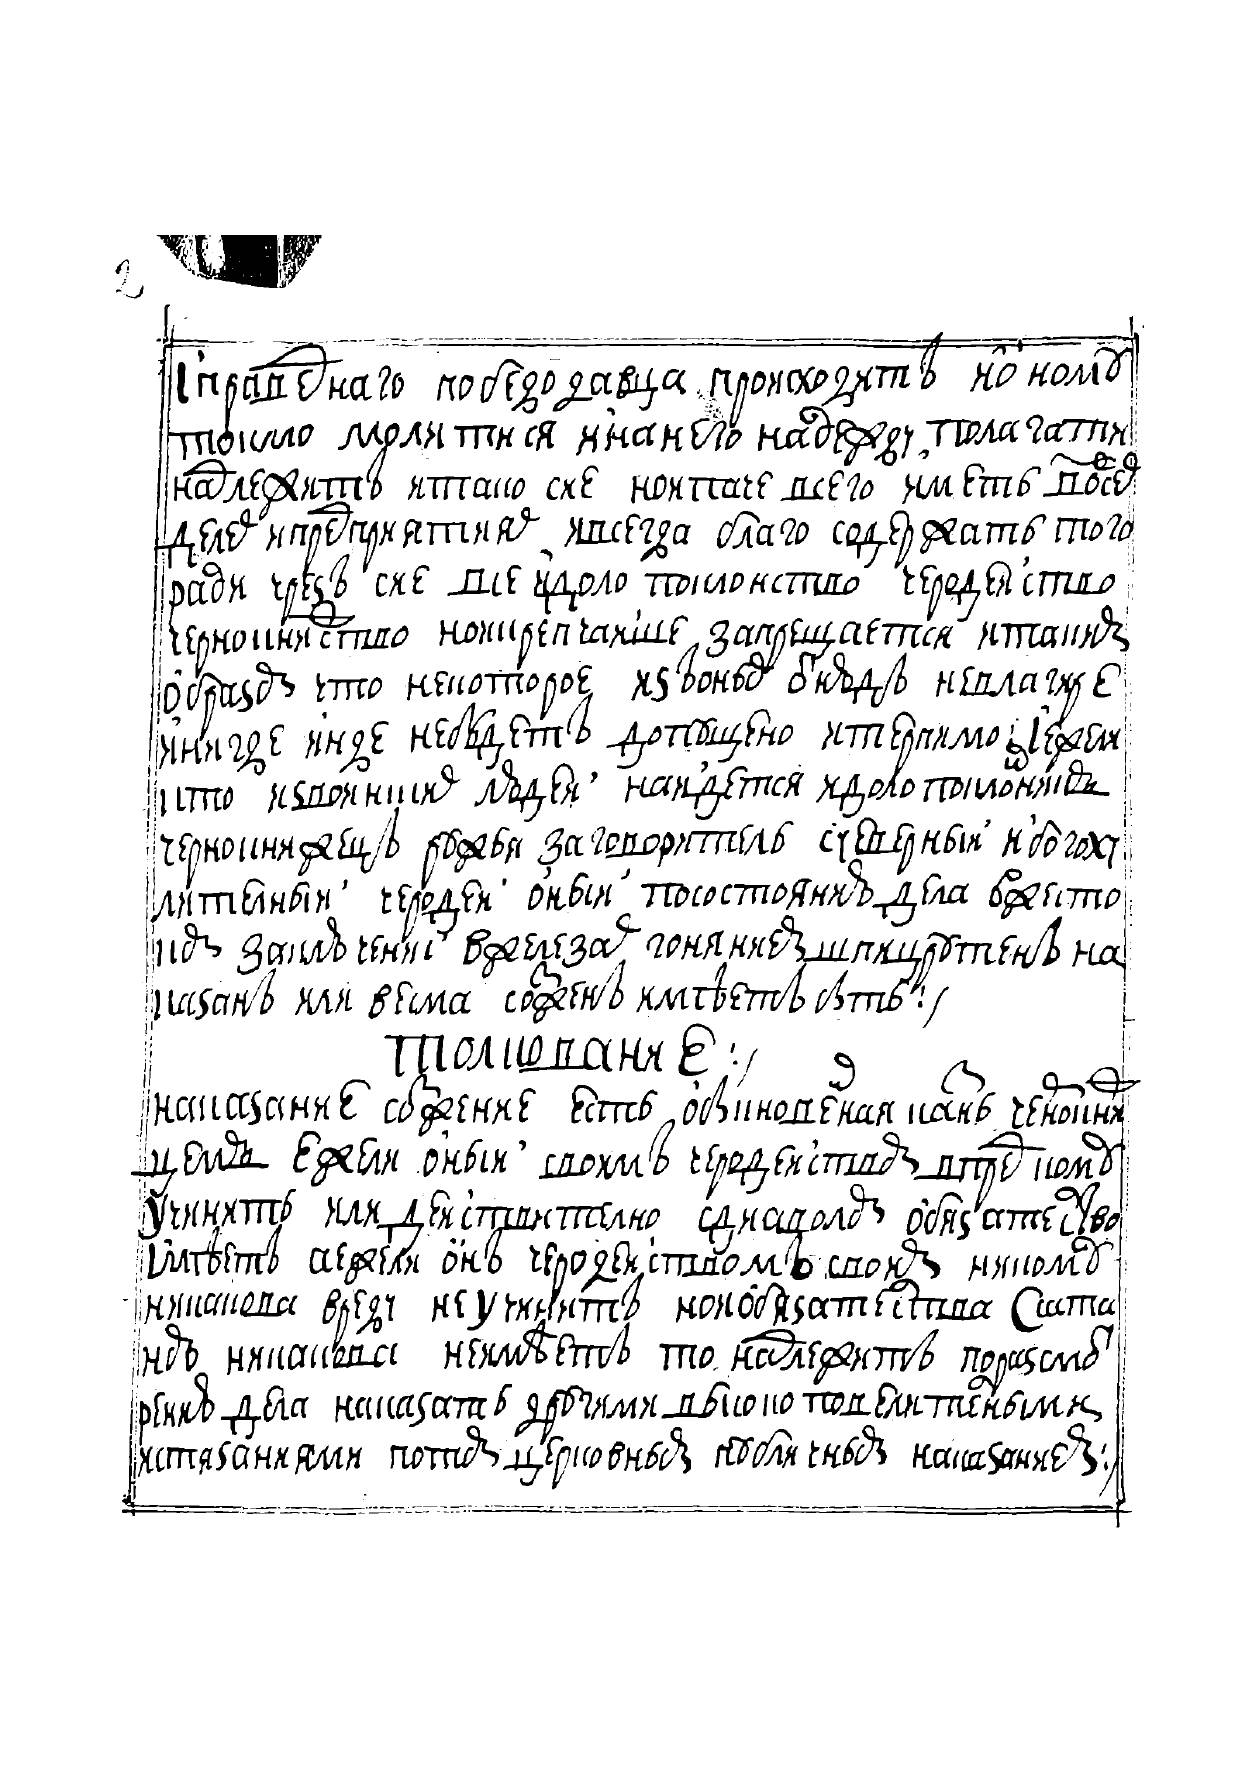 2
Iправеднаго победодавца происходитъ и оному
токмо молитися и на него надежду полагати
надлежитъ и тако сие наипаче всего иметь во всех
делех и предприятиях и всегда благо содержать того
ради чрезъ сие все идоло поклонство чародейство
чернокнижство наикрепчайше запрещается и таким
образом что некоторое из оных отнюдъ не в лагире
и нигде инде не будетъ допущено и терпимо и ежели
кто из воинских людей найдется идолопоклонник
чернокнижецъ ружья заговоритель суеверный и богоху
лительный чародей оный по состоянию дела в жесто
ком заключении в железах гонянием шпицрутенъ на
казанъ или весма сожженъ имѣетъ быть :/
толкованиЕ :/
наказание сожжения есть обыкновенная казнь чернокни
жцемъ ежели оный своимъ чародейством вред кому
учинить или действително с дияволом обязательство
Iмѣетъ а ежели онъ чародействомъ своим никому
никакова вреду не учинитъ и не обязателства С сата
ною никакова неимѣетъ то надлежитъ по разсмо
рению дела наказать другими вышепомянутыми
истязаниями и потом церковным публичным наказанием :/